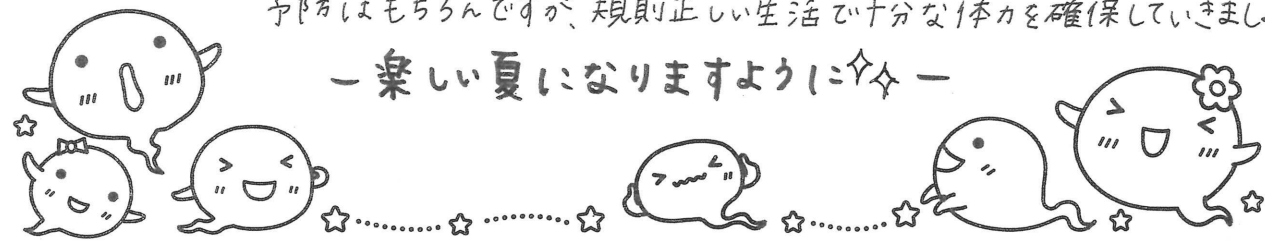 予防はもちろんですが、規則正しい生活で十分な体力を確保していきまし
ー楽しい夏になりますように✧✧ー